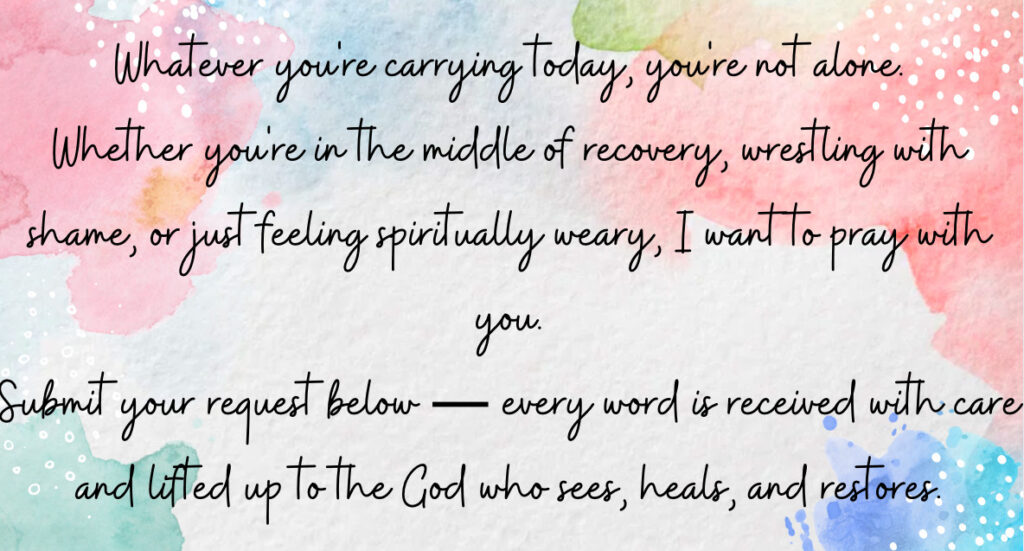 Whatever you're carrying today, you're not alone.
Whether you're in the middle of recovery, wrestling with
shame, or just feeling spiritually weary, I want to pray with
you.
Submit your request below — every word is received with care
and lifted up to the God who sees, heals, and restores.